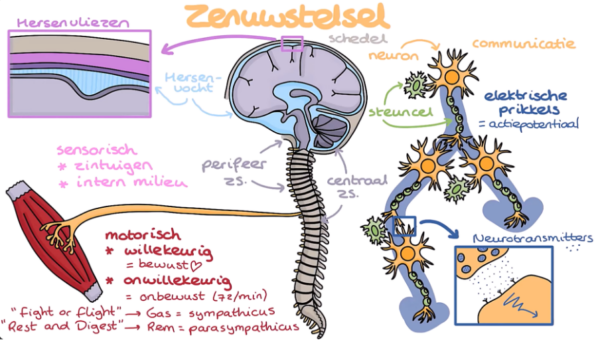 Zenuwstelsel
Hersenvliezen
schedel
Hersen-
vocht
neuron
communicatie
steuncel
elektrische
prikkels
= actiepotentiaal
sensorisch
* zintuigen
* intern milieu
perifeer
zs.
centraal
zs.
motorisch
* willekeurig
= bewust♡
* onwillekeurig
= onbewust (72/min)
"Fight or flight" → Gas = sympathicus
"Rest and Digest" → Rem = parasympathicus
Neurotransmitters